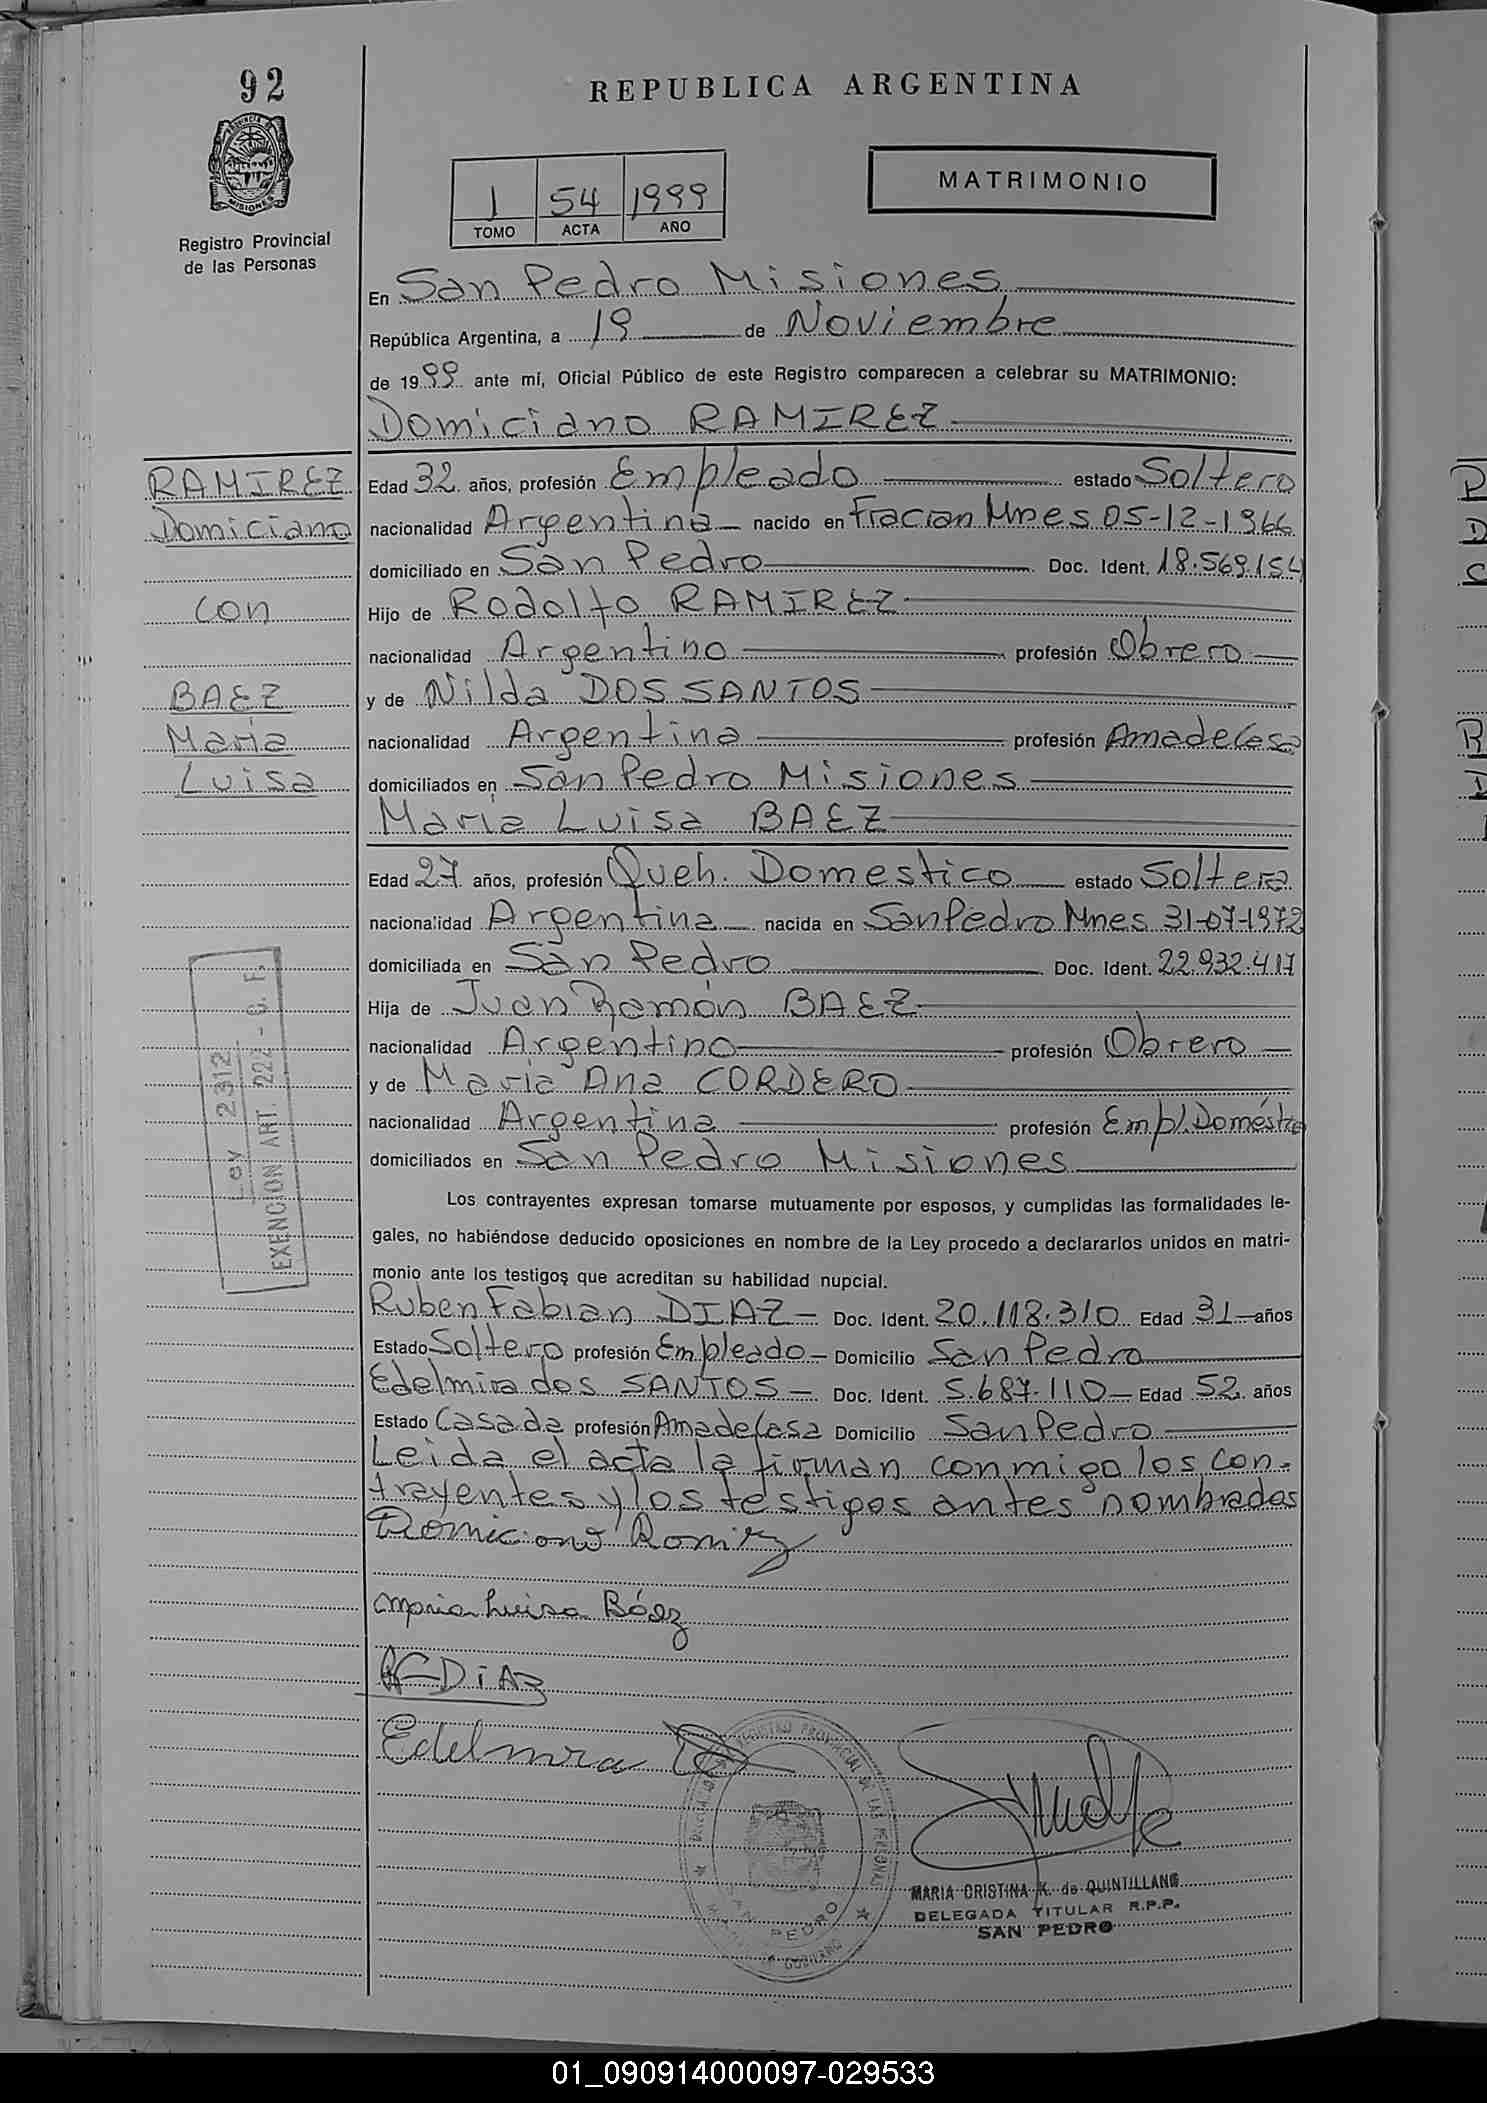 92
REPUBLICA ARGENTINA
PROVINCIA DE
MISIONES
Registro Provincial
de las Personas
1 54 1999
TOMO ACTA AÑO
MATRIMONIO
En San Pedro Misiones
República Argentina, a 19 de Noviembre
de 1999 ante mí, Oficial Público de este Registro comparecen a celebrar su MATRIMONIO:
Domiciano RAMIREZ
RAMIREZ
Domiciano
con
BAEZ
Maria
Luisa
Edad 32 años, profesión Empleado estado Soltero
nacionalidad Argentina nacido en Fracran Mnes 05-12-1966
domiciliado en San Pedro Doc. Ident. 18.569.154
Hijo de Rodolfo RAMIREZ
nacionalidad Argentino profesión Obrero
y de Nilda DOS SANTOS
nacionalidad Argentina profesión Ama de Casa
domiciliados en San Pedro Misiones
Maria Luisa BAEZ
Edad 27 años, profesión Queh. Domestico estado Soltera
nacionalidad Argentina nacida en San Pedro Mnes 31-07-1972
domiciliada en San Pedro Doc. Ident. 22.932.417
Hija de Juan Ramón BAEZ
nacionalidad Argentino profesión Obrero
y de Maria Ana CORDERO
nacionalidad Argentina profesión Empl. Domésti
domiciliados en San Pedro Misiones
Ley 2312
EXENCION ART. 222 - C. F.
Los contrayentes expresan tomarse mutuamente por esposos, y cumplidas las formalidades le-
gales, no habiéndose deducido oposiciones en nombre de la Ley procedo a declararlos unidos en matri-
monio ante los testigos que acreditan su habilidad nupcial.
Ruben Fabian DIAZ Doc. Ident. 20.118.310 Edad 31 años
Estado Soltero profesión Empleado Domicilio San Pedro
Edelmira dos SANTOS Doc. Ident. 5.687.110 Edad 52 años
Estado Casada profesión Ama de Casa Domicilio San Pedro
Leida el acta la firman conmigo los con-
trayentes y los testigos antes nombrados
Domiciano Ramirez
Maria Luisa Báez
DiAz
Edelmira
REGISTRO PROVINCIAL DE LAS PERSONAS
SAN PEDRO
MARIA CRISTINA K. de QUINTILLANO
DELEGADA TITULAR R.P.P.
SAN PEDRO
01_090914000097-029533